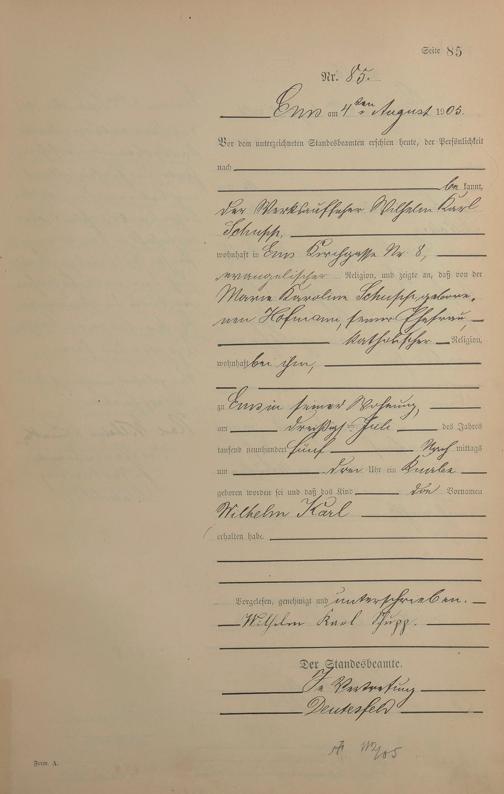 Seite 85
Nr. 85.
Ems am 4ten August 1905.
Vor dem unterzeichneten Standesbeamten erschien heute, der Persönlichkeit
nach
be kannt,
der Werksaufseher Wilhelm Karl
Schupp,
wohnhaft in Ems Kirchgasse Nr. 8,
evangelischer Religion, und zeigte an, daß von der
Marie Karoline Schupp, gebore,
nen Hofmann, seiner Ehefrau,
katholischer Religion,
wohnhaft bei ihm,
zu Ems in seiner Wohnung,
am dreißigsten Juli des Jahres
tausend neunhundert fünf Nach mittags
um drei Uhr ein Knabe
geboren worden sei und daß das Kind die Vornamen
Wilhelm Karl
erhalten habe.
Vorgelesen, genehmigt und unterschrieben.
Wilhelm Karl Schupp.
Der Standesbeamte.
In Vertretung
Deutesfeld
Form. A.